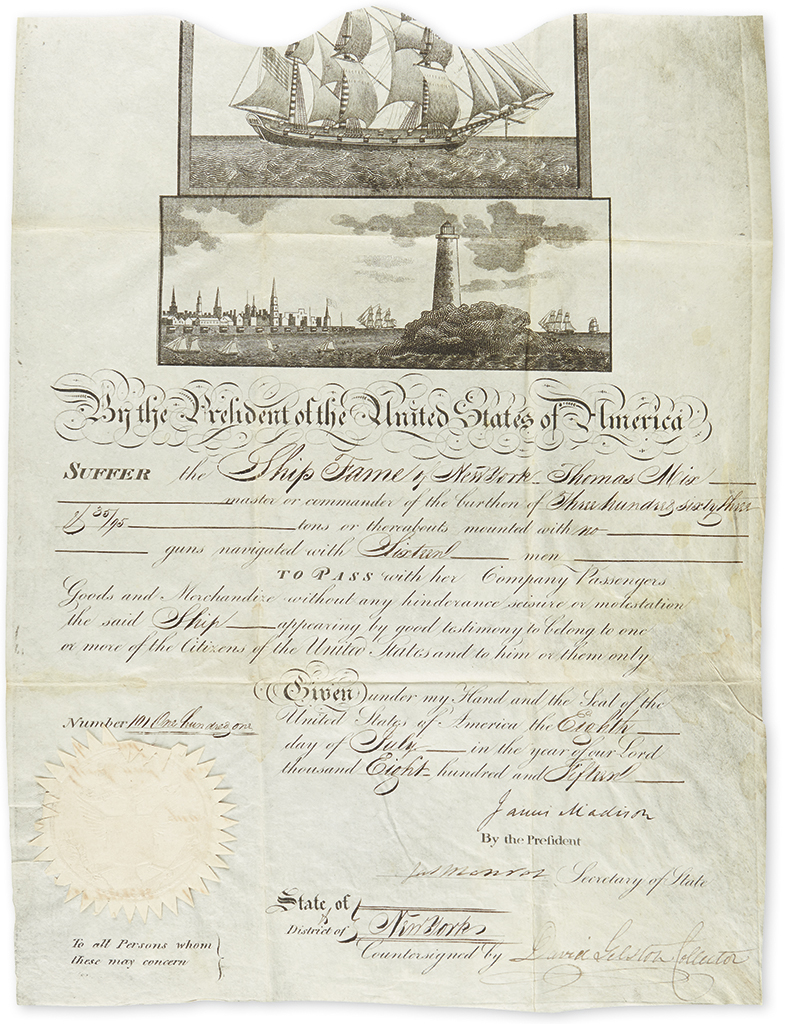 By the President of the United States of America
SUFFER the Ship Fame of New York Thomas Mix
master or commander of the burthen of Three hundred sixty three
& 35/95 tons or thereabouts mounted with no
guns navigated with Sixteen men
TO PASS with her Company Passengers
Goods and Merchandize without any hinderance seisure or molestation
the said Ship appearing by good testimony to belong to one
or more of the Citizens of the United States and to him or them only
Given under my Hand and the Seal of the
United States of America the Eighth
day of July in the year of our Lord
thousand Eight hundred and Fifteen
Number 101 One hundred one
James Madison
By the President
Jas Monroe Secretary of State
State of
& District of New York
Countersigned by David Gelston Collector
To all Persons whom
these may concern